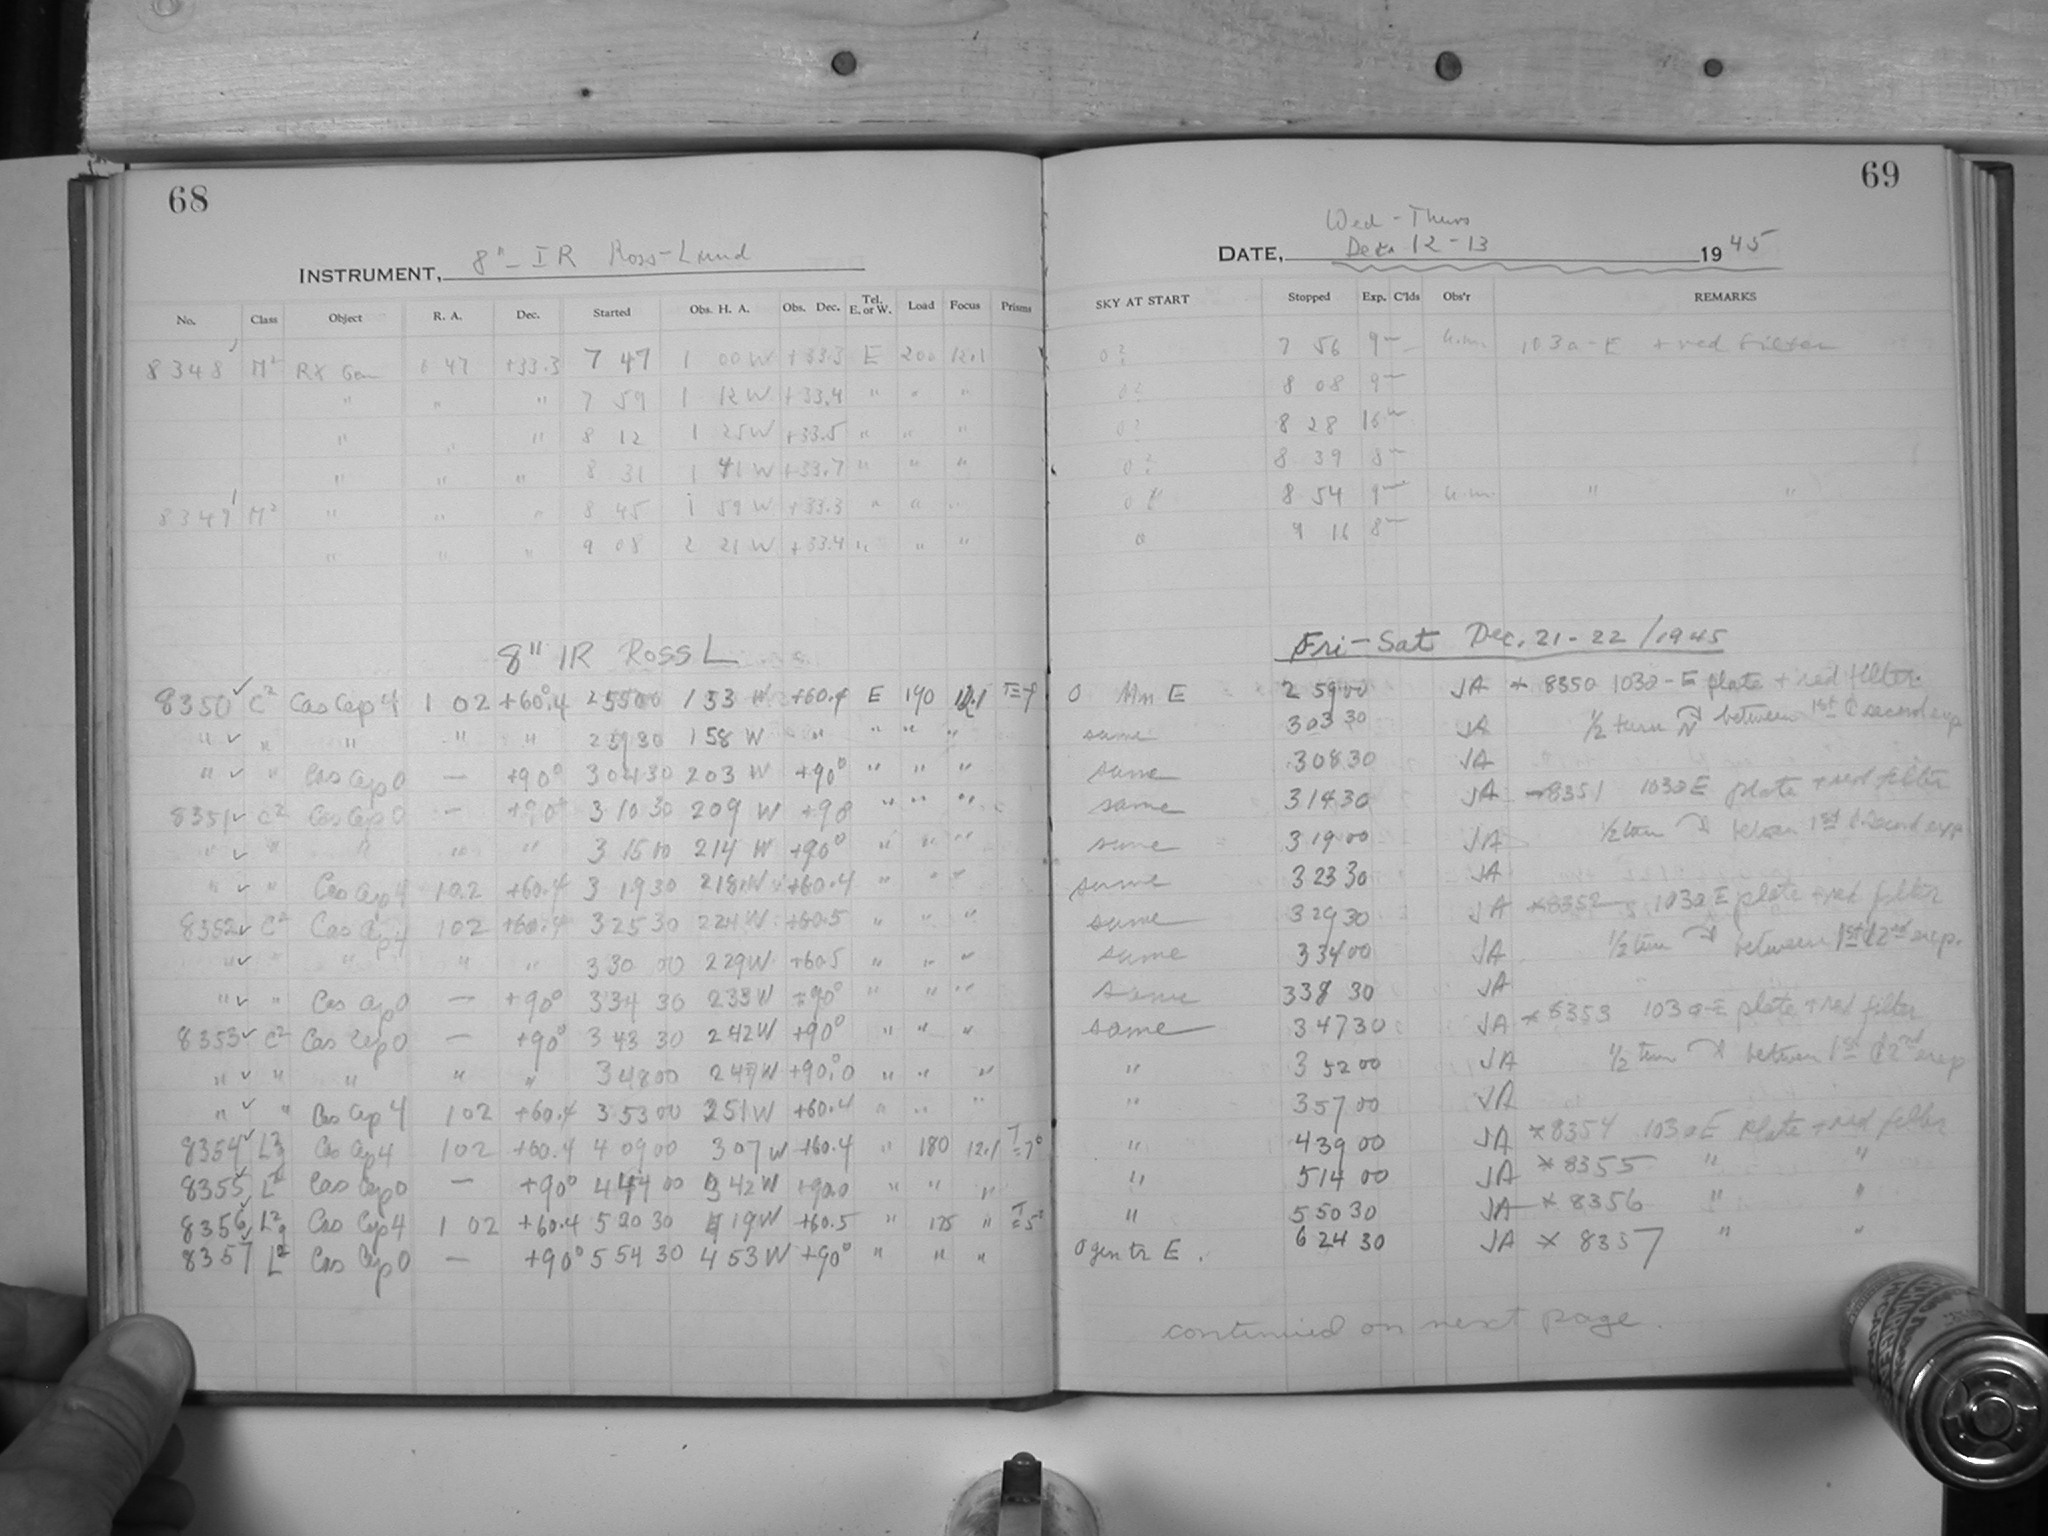 68
INSTRUMENT, 8" - IR Ross-Lund
No. Class Object R. A. Dec. Started Obs. H. A. Obs. Dec. Tel. E. or W. Load Focus Prisms
8348 M² RX Gem 6 47 +33.3 7 47 1 00 W +33.3 E 200 12.1
" " " 7 59 1 12 W +33.4 " " "
" " " 8 12 1 25 W +33.5 " " "
" " " 8 31 1 41 W +33.7 " " "
8349 M² " " " 8 45 1 59 W +33.3 " " "
" " " 9 08 2 21 W +33.4 " " "
8" IR ROSS L
8350 ✓ C² Cas Cep 4 1 02 +60°.4 2 55 00 1 53 W +60.4 E 190 12.1
" ✓ " " " " 2 59 30 1 58 W " " " "
" ✓ " Cas Cep 0 — +90° 3 04 30 2 03 W +90° " " "
8351 ✓ C² Cas Cep 0 — +90° 3 10 30 2 09 W +90 " " "
" ✓ " " " " 3 15 00 2 14 W +90° " " "
" ✓ " Cas Cep 4 1 02 +60.4 3 19 30 2 18 W +60.4 " " "
8352 ✓ C² Cas Cep 4 1 02 +60.4 3 25 30 2 24 W +60.5 " " "
" ✓ " " " 3 30 00 2 29 W +60.5 " " "
" ✓ " Cas Cep 0 — +90° 3 34 30 2 33 W +90° " " "
8353 ✓ C² Cas Cep 0 — +90° 3 43 30 2 42 W +90° " " "
" ✓ " " " " 3 48 00 2 47 W +90.0 " " "
" ✓ " Cas Cep 4 1 02 +60.4 3 53 00 2 51 W +60.4 " " "
8354 ✓ Cas Cep 4 1 02 +60.4 4 09 00 3 07 W +60.4 " 180 12.1 T = 7°
8355 ✓ L² Cas Cep 0 — +90° 4 44 00 3 42 W +90.0 " " "
8356 ✓ L² Cas Cep 4 1 02 +60.4 5 20 30 4 19 W +60.5 " 175 " T = 5°
8357 ✓ L² Cas Cep 0 — +90° 5 54 30 4 53 W +90° " " "
69
Wed - Thurs
DATE, Dec. 12 - 13 1945
SKY AT START Stopped Exp. C'lds Obs'r REMARKS
0? 7 56 9 103a-E + red filter
0? 8 08 9
0? 8 28 16
0? 8 39 8
0 8 54 9 " "
0 9 16 8
Fri - Sat Dec. 21 - 22 / 1945
0 E 2 59 00 JA * 8350 103a-E plate + red filter.
same 3 03 30 JA ½ turn between 1st & second exp
same 3 08 30 JA
same 3 14 30 JA * 8351 103a E plate + red filter
same 3 19 00 JA ½ turn between 1st & second exp
same 3 23 30 JA
same 3 29 30 JA * 8352 103a E plate + red filter
same 3 34 00 JA ½ turn between 1st & 2nd exp.
same 3 38 30 JA
same 3 47 30 JA * 8353 103a-E plate + red filter
" 3 52 00 JA ½ turn between 1st & 2nd exp
" 3 57 00 JA
" 4 39 00 JA * 8354 103a E plate + red filter
" 5 14 00 JA * 8355 " "
" 5 50 30 JA * 8356 " "
0 E. 6 24 30 JA * 8357 " "
continued on next page.